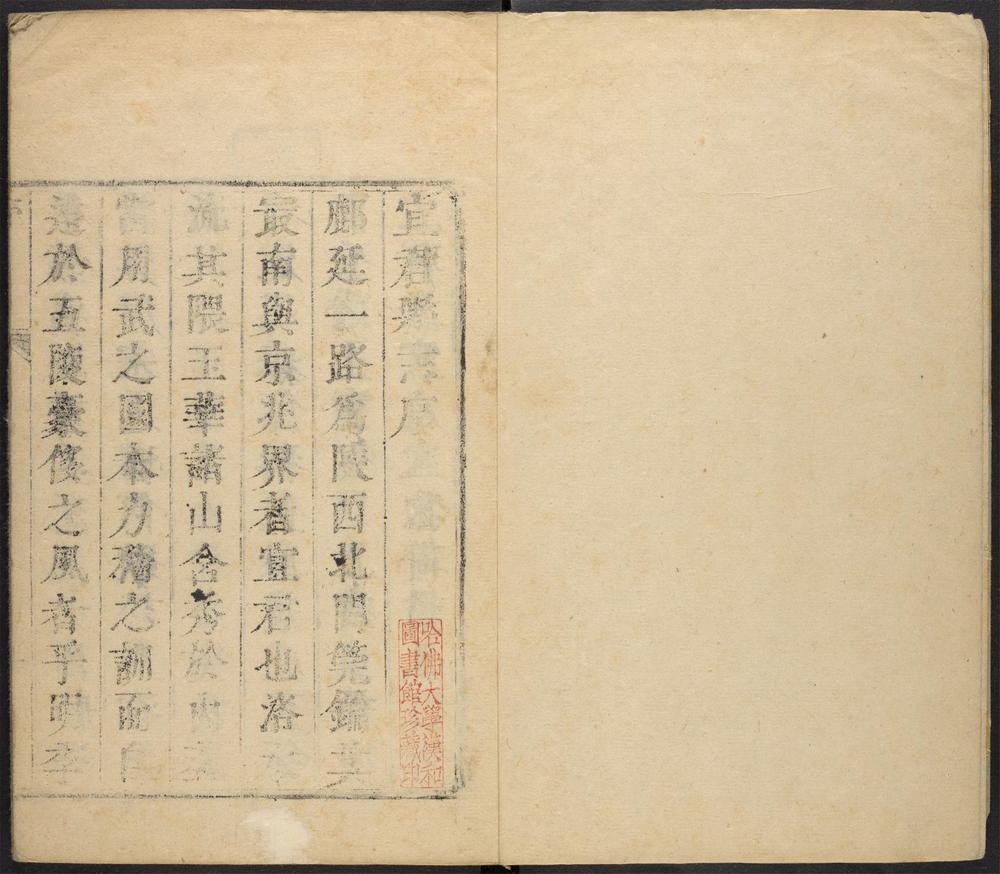 宜君縣志序
鄜延一路為陝西北門筦鑰其
最南與京兆界者宜君也洛水
流其隈玉華諸山含秀於內
當用武之國本力穡之訓而自
遠於五陵豪侈之風者乎明李
哈佛大學漢和
圖書館珍藏印